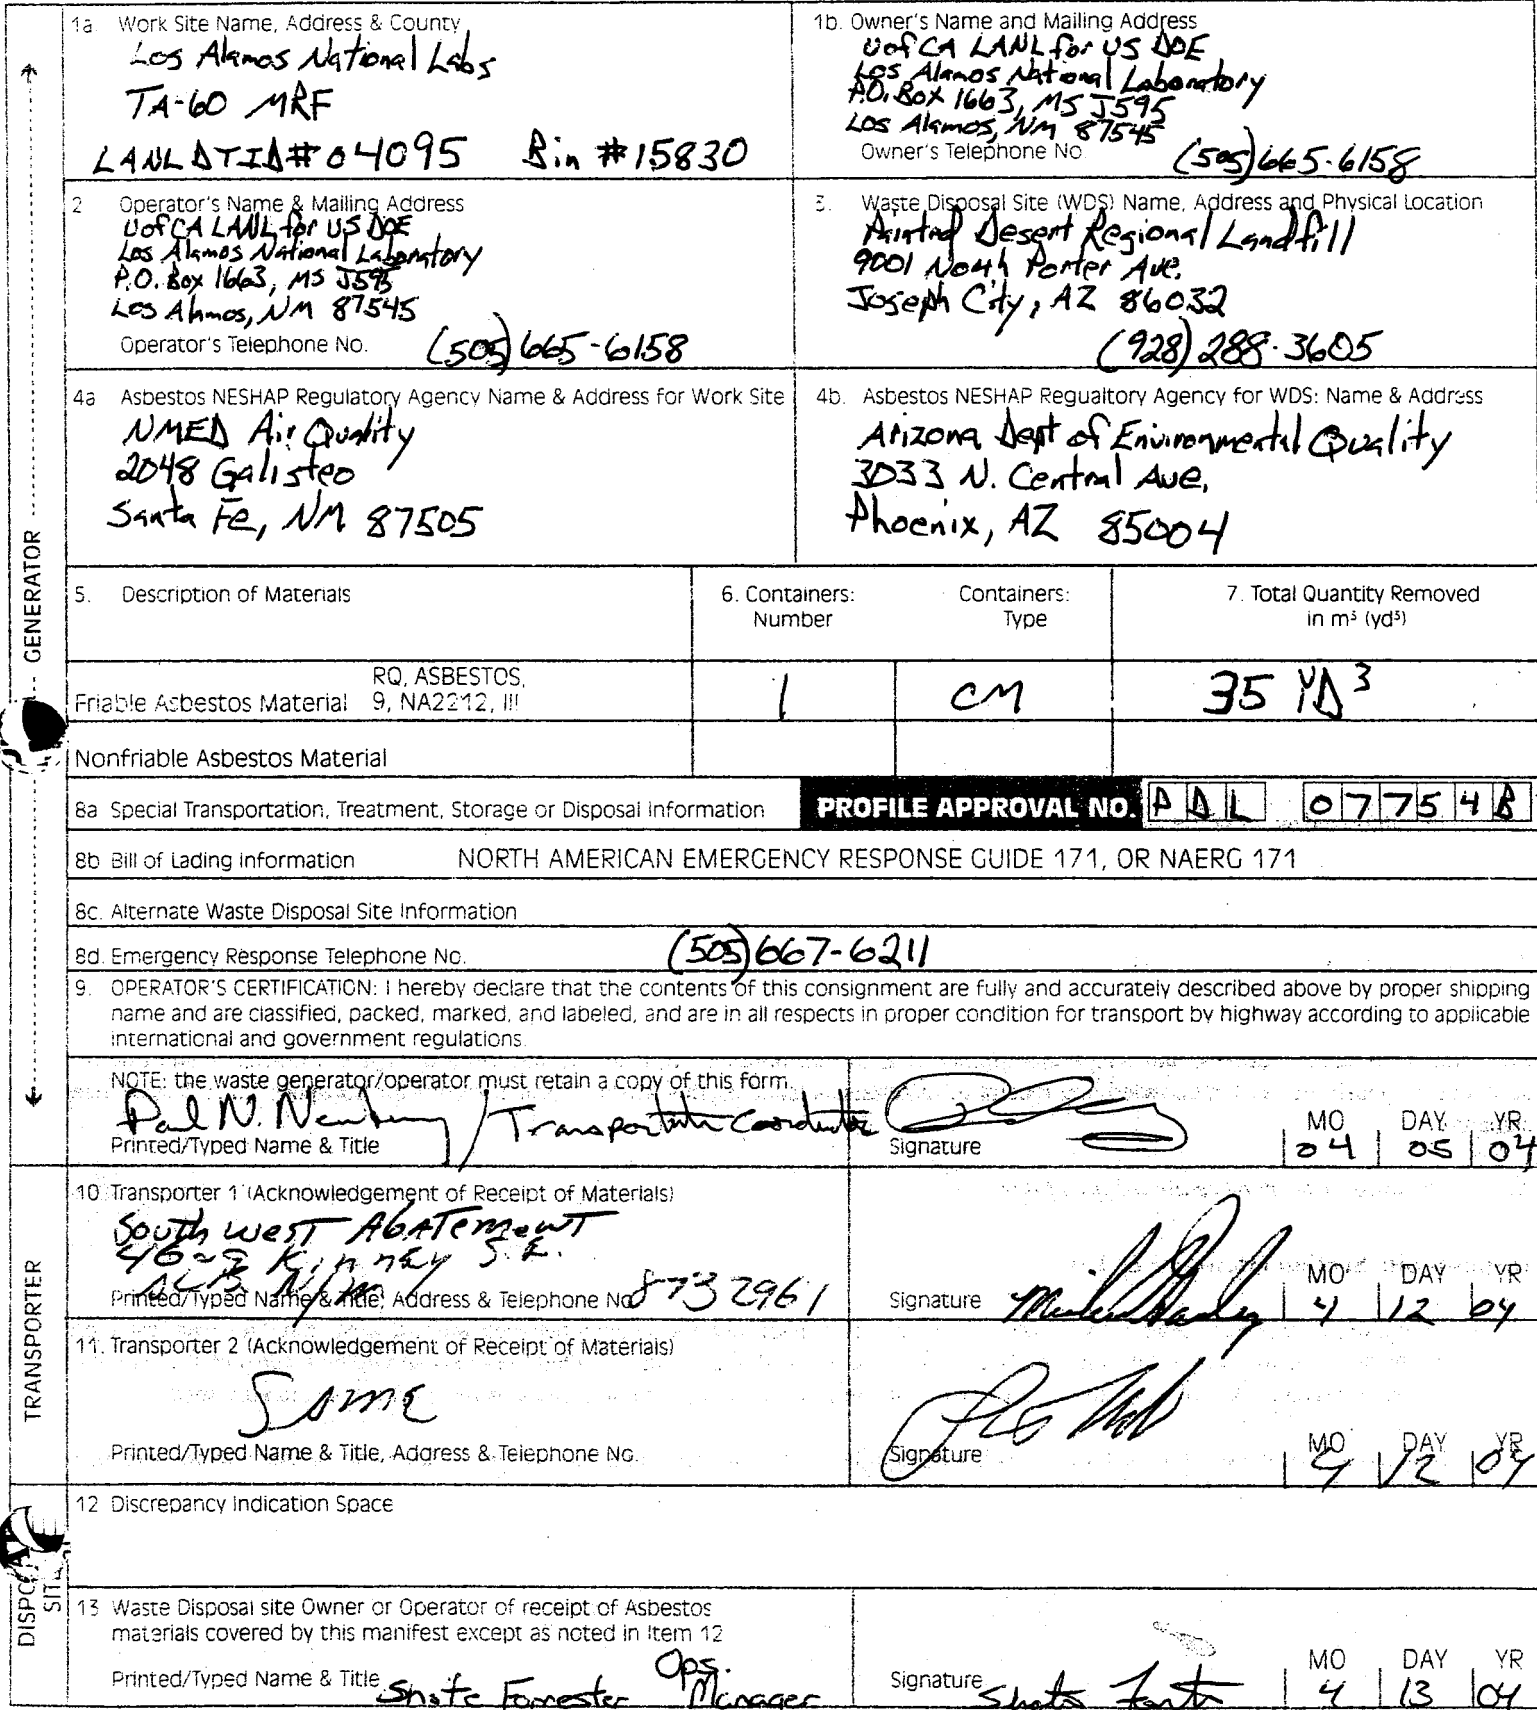 1a. Work Site Name, Address & County
Los Alamos National Labs
TA-60 MRF
LANL DTID# 04095 Bin #15830
1b. Owner's Name and Mailing Address
UofCA LANL for US DOE
Los Alamos National Laboratory
P.O. Box 1663, MS J595
Los Alamos, NM 87545
Owner's Telephone No. (505)665-6158
2 Operator's Name & Mailing Address
UofCA LANL for US DOE
Los Alamos National Laboratory
P.O. Box 1663, MS J595
Los Alamos, NM 87545
Operator's Telephone No. (505)665-6158
3. Waste Disposal Site (WDS) Name, Address and Physical Location
Painted Desert Regional Landfill
9001 North Porter Ave.
Joseph City, AZ 86032
(928)288-3605
4a Asbestos NESHAP Regulatory Agency Name & Address for Work Site
NMED Air Quality
2048 Galisteo
Santa Fe, NM 87505
4b. Asbestos NESHAP Regualtory Agency for WDS: Name & Address
Arizona Dept of Environmental Quality
3033 N. Central Ave,
Phoenix, AZ 85004
GENERATOR
5. Description of Materials
6. Containers:
Number
Containers:
Type
7. Total Quantity Removed
in m³ (yd³)
RQ, ASBESTOS,
Friable Asbestos Material 9, NA2212, III
1 CM 35 YD³
Nonfriable Asbestos Material
8a Special Transportation, Treatment, Storage or Disposal Information PROFILE APPROVAL NO. PDL 07754B
8b Bill of Lading Information NORTH AMERICAN EMERGENCY RESPONSE GUIDE 171, OR NAERG 171
8c. Alternate Waste Disposal Site Information
8d. Emergency Response Telephone No. (505)667-6211
9. OPERATOR'S CERTIFICATION: I hereby declare that the contents of this consignment are fully and accurately described above by proper shipping
name and are classified, packed, marked, and labeled, and are in all respects in proper condition for transport by highway according to applicable
international and government regulations.
NOTE: the waste generator/operator must retain a copy of this form.
Paul N. Newberry / Transportation Coordinator
Printed/Typed Name & Title
Signature
MO DAY YR
04 05 04
TRANSPORTER
10 Transporter 1 (Acknowledgement of Receipt of Materials)
SouthWest Abatement
Kinney S.E.
ALB. N/M 8732961
Printed/Typed Name & Title, Address & Telephone No.
Signature
MO DAY YR
4 12 04
11. Transporter 2 (Acknowledgement of Receipt of Materials)
Same
Printed/Typed Name & Title, Address & Telephone No.
Signature
MO DAY YR
4 12 04
12 Discrepancy Indication Space
13 Waste Disposal site Owner or Operator of receipt of Asbestos
materials covered by this manifest except as noted in Item 12
Printed/Typed Name & Title Forrester Ops. Manager
Signature
MO DAY YR
4 13 04